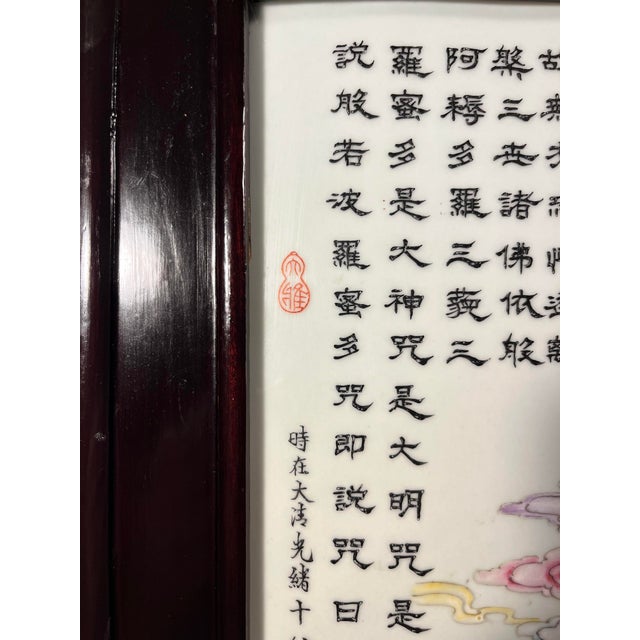 槃三世諸佛依般
阿耨多羅三藐三
羅蜜多是大神咒是大明咒是
說般若波羅蜜多咒即說咒曰
時在大清光緒十
大雅